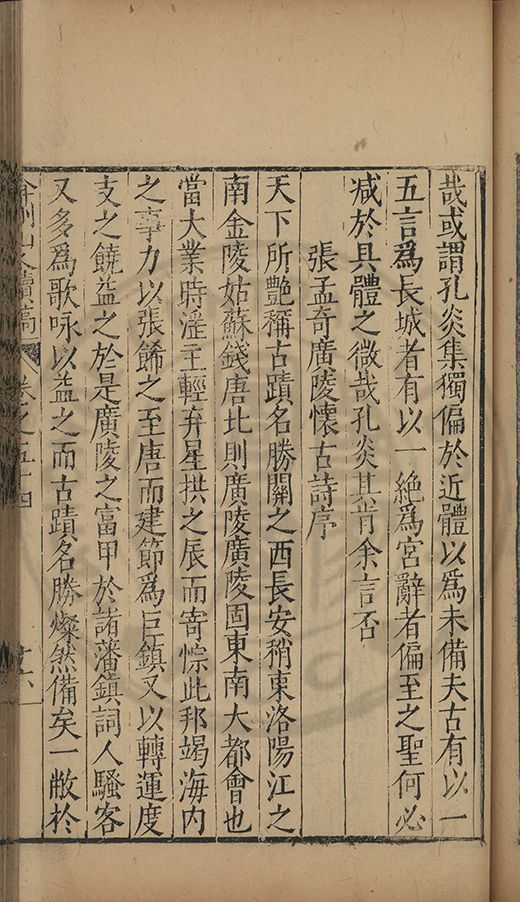 哉或謂孔炎集獨偏於近體以爲未備夫古有以一
五言爲長城者有以一絶爲宮辭者偏至之聖何必
减於具體之微哉孔炎其肯余言否
張孟奇廣陵懷古詩序
天下所艷稱古蹟名勝關之西長安稍東洛陽江之
南金陵姑蘇錢唐比則廣陵廣陵固東南大都會也
當大業時淫王輕弃星拱之辰而寄悰此邦竭海内
之事力以張餙之至唐而建節爲巨鎮又以轉運度
支之饒益之於是廣陵之富甲於諸藩鎮詞人騷客
又多爲歌咏以益之而古蹟名勝燦然備矣一敝於
弇州山人續稿 卷之五十四